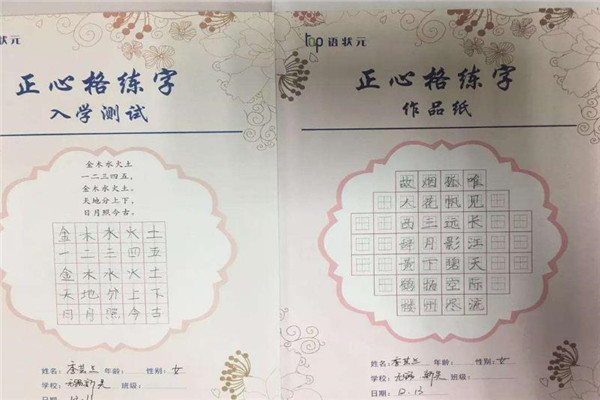 状元
正心格练字
入学测试
金木水火土
一二三四五，
金木水火土。
天地分上下，
日月照今古。
金木水火土
一二三四五
金木水火土
天地分上下
日月照今古
姓名： 年龄： 性别：女
学校：无锡新吴 班级：
日期：
top 语状元
正心格练字
作品纸
故烟孤唯
人花帆见
西三远长
辞月影江
黄下碧天
鹤扬空际
楼州尽流
姓名： 年龄： 性别：女
学校：无锡新吴 班级：
日期：12.13